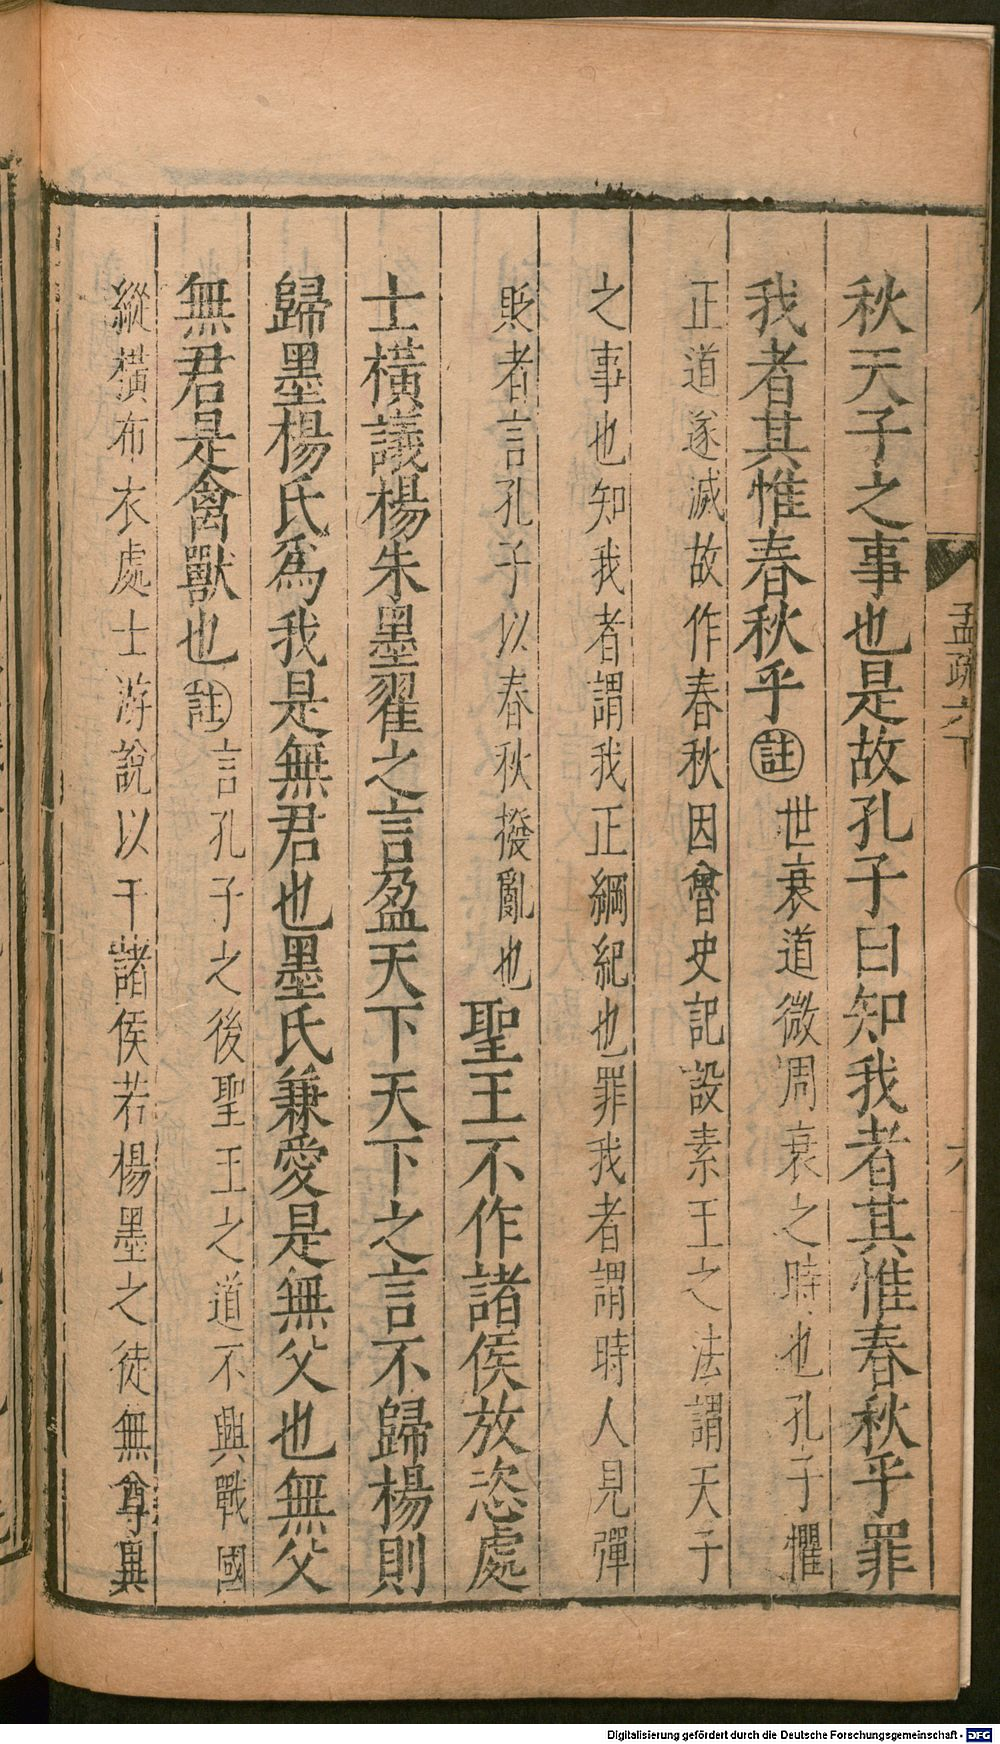 秋天子之事也是故孔子曰知我者其惟春秋乎罪
我者其惟春秋乎註世衰道微周衰之時也孔子懼
正道遂滅故作春秋因魯史記設素王之法謂天子
之事也知我者謂我正綱紀也罪我者謂時人見彈
貶者言孔子以春秋撥亂也聖王不作諸侯放恣處
士橫議楊朱墨翟之言盈天下天下之言不歸楊則
歸墨楊氏爲我是無君也墨氏兼愛是無父也無父
無君是禽獸也註言孔子之後聖王之道不興戰國
縱橫布衣處士游說以干諸侯若楊墨之徒無尊異
孟疏六下
Digitalisierung gefördert durch die Deutsche Forschungsgemeinschaft - DFG